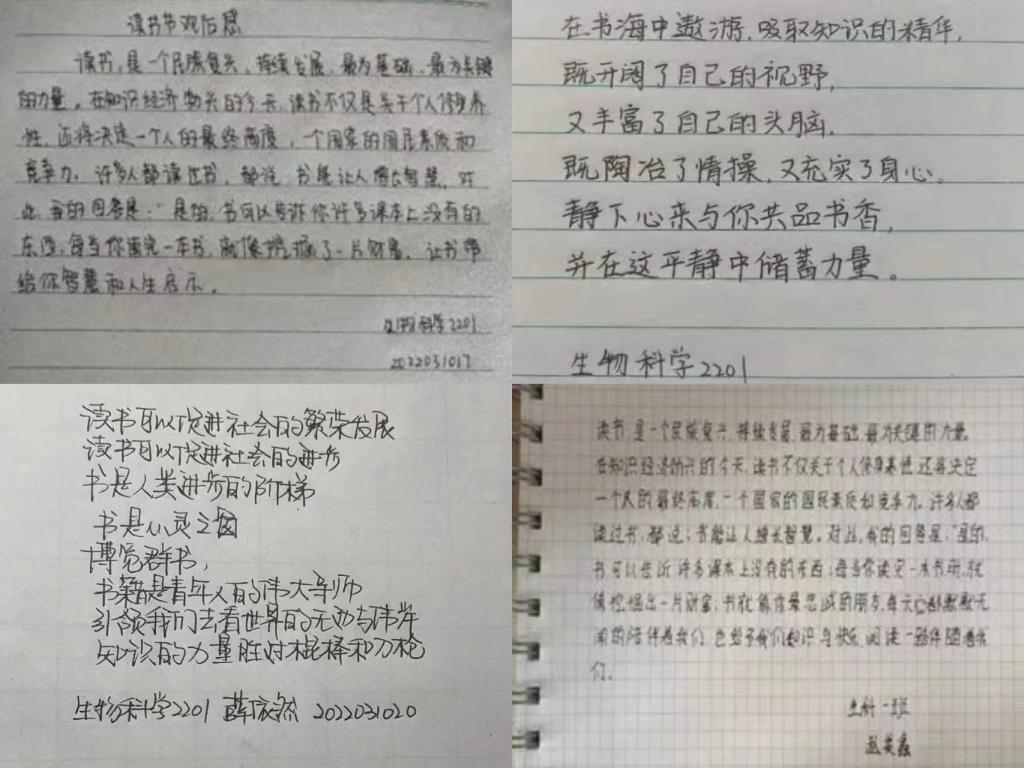 读书节观后感
读书,是一个民族复兴、持续发展、最为基础、最为关键
的力量。在知识经济勃兴的今天,读书不仅是关于个人修身养
性,还将决定一个人的最终高度,一个国家的国民素质和
竞争力。许多人都读过书,都说:书能让人增长智慧。对
此,我的回答是:“是的,书可以告诉你许多课本上没有的
东西,每当你读完一本书,就像挖掘了一片财富。让书带
给你智慧和人生启示。
生物科学2201
2022031017
在书海中遨游,吸取知识的精华,
既开阔了自己的视野,
又丰富了自己的头脑,
既陶冶了情操,又充实了身心。
静下心来与你共品书香,
并在这平静中储蓄力量。
生物科学2201
读书可以促进社会的繁荣发展
读书可以促进社会的进步
书是人类进步的阶梯
书是心灵之窗
博览群书,
书籍是青年人的伟大导师
引领我们去看世界的无边与伟岸
知识的力量胜过棍棒和刀枪
生物科学2201 薛依然 2022031020
读书,是一个民族复兴、持续发展、最为基础、最为关键的力量。
在知识经济勃兴的今天,读书不仅关于个人修身养性,还将决定
一个人的最终高度,一个国家的国民素质和竞争力。许多人都
读过书,都说:书能让人增长智慧。对此,我的回答是:“是的,
书可以告诉许多课本上没有的东西;每当你读完一本书时,就
像挖掘出一片财富;书就像你最忠诚的朋友,每天都默默无
闻的陪伴着我们,也给予我们知识与快乐,阅读一路伴随着我
们。
生科一班